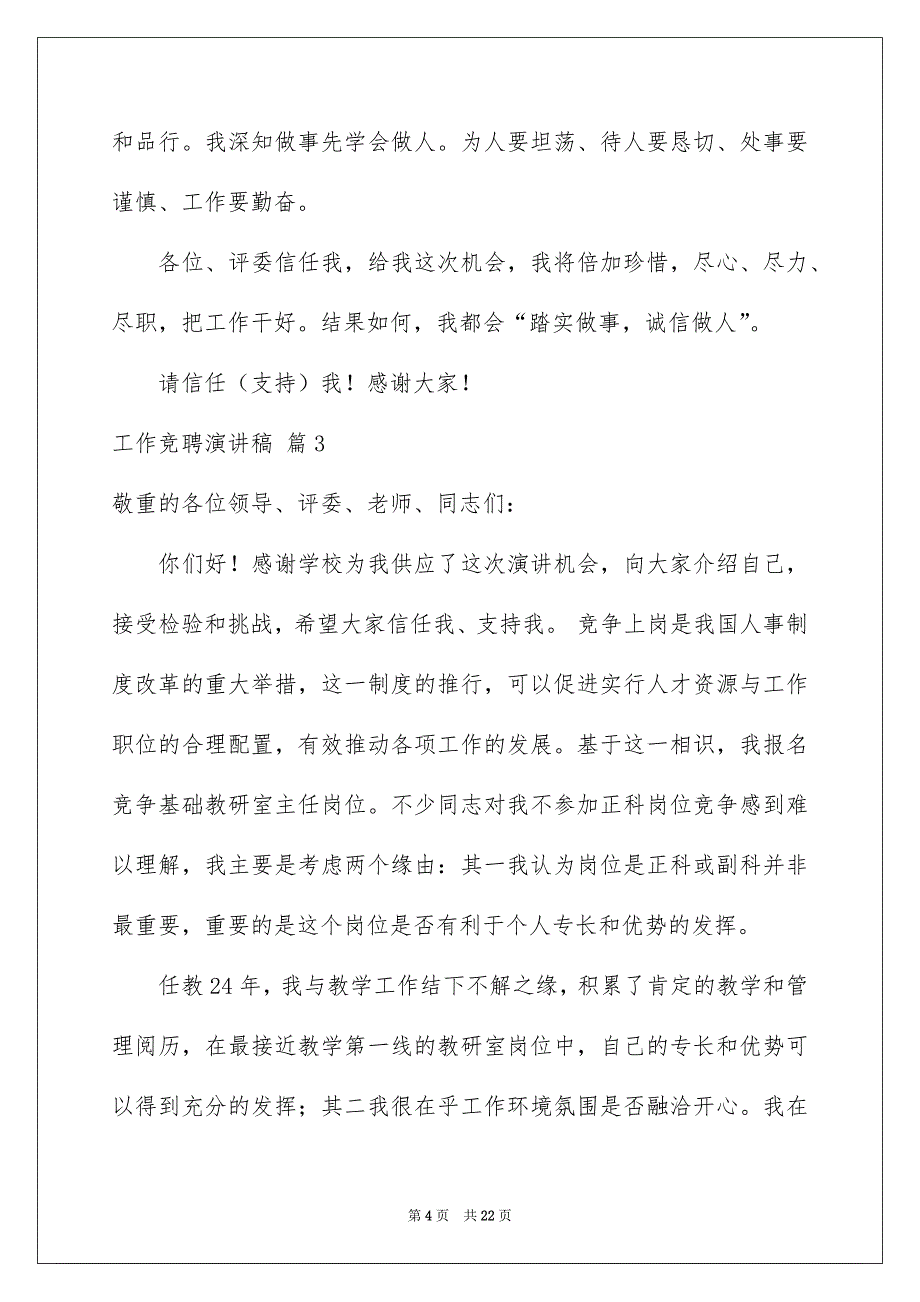 和品行。我深知做事先学会做人。为人要坦荡、待人要恳切、处事要
谨慎、工作要勤奋。
各位、评委信任我，给我这次机会，我将倍加珍惜，尽心、尽力、
尽职，把工作干好。结果如何，我都会“踏实做事，诚信做人”。
请信任（支持）我！感谢大家！
工作竞聘演讲稿 篇3
敬重的各位领导、评委、老师、同志们：
你们好！感谢学校为我供应了这次演讲机会，向大家介绍自己，
接受检验和挑战，希望大家信任我、支持我。 竞争上岗是我国人事制
度改革的重大举措，这一制度的推行，可以促进实行人才资源与工作
职位的合理配置，有效推动各项工作的发展。基于这一相识，我报名
竞争基础教研室主任岗位。不少同志对我不参加正科岗位竞争感到难
以理解，我主要是考虑两个缘由：其一我认为岗位是正科或副科并非
最重要，重要的是这个岗位是否有利于个人专长和优势的发挥。
任教24年，我与教学工作结下不解之缘，积累了肯定的教学和管
理阅历，在最接近教学第一线的教研室岗位中，自己的专长和优势可
以得到充分的发挥；其二我很在乎工作环境氛围是否融洽开心。我在
第4页 共22页